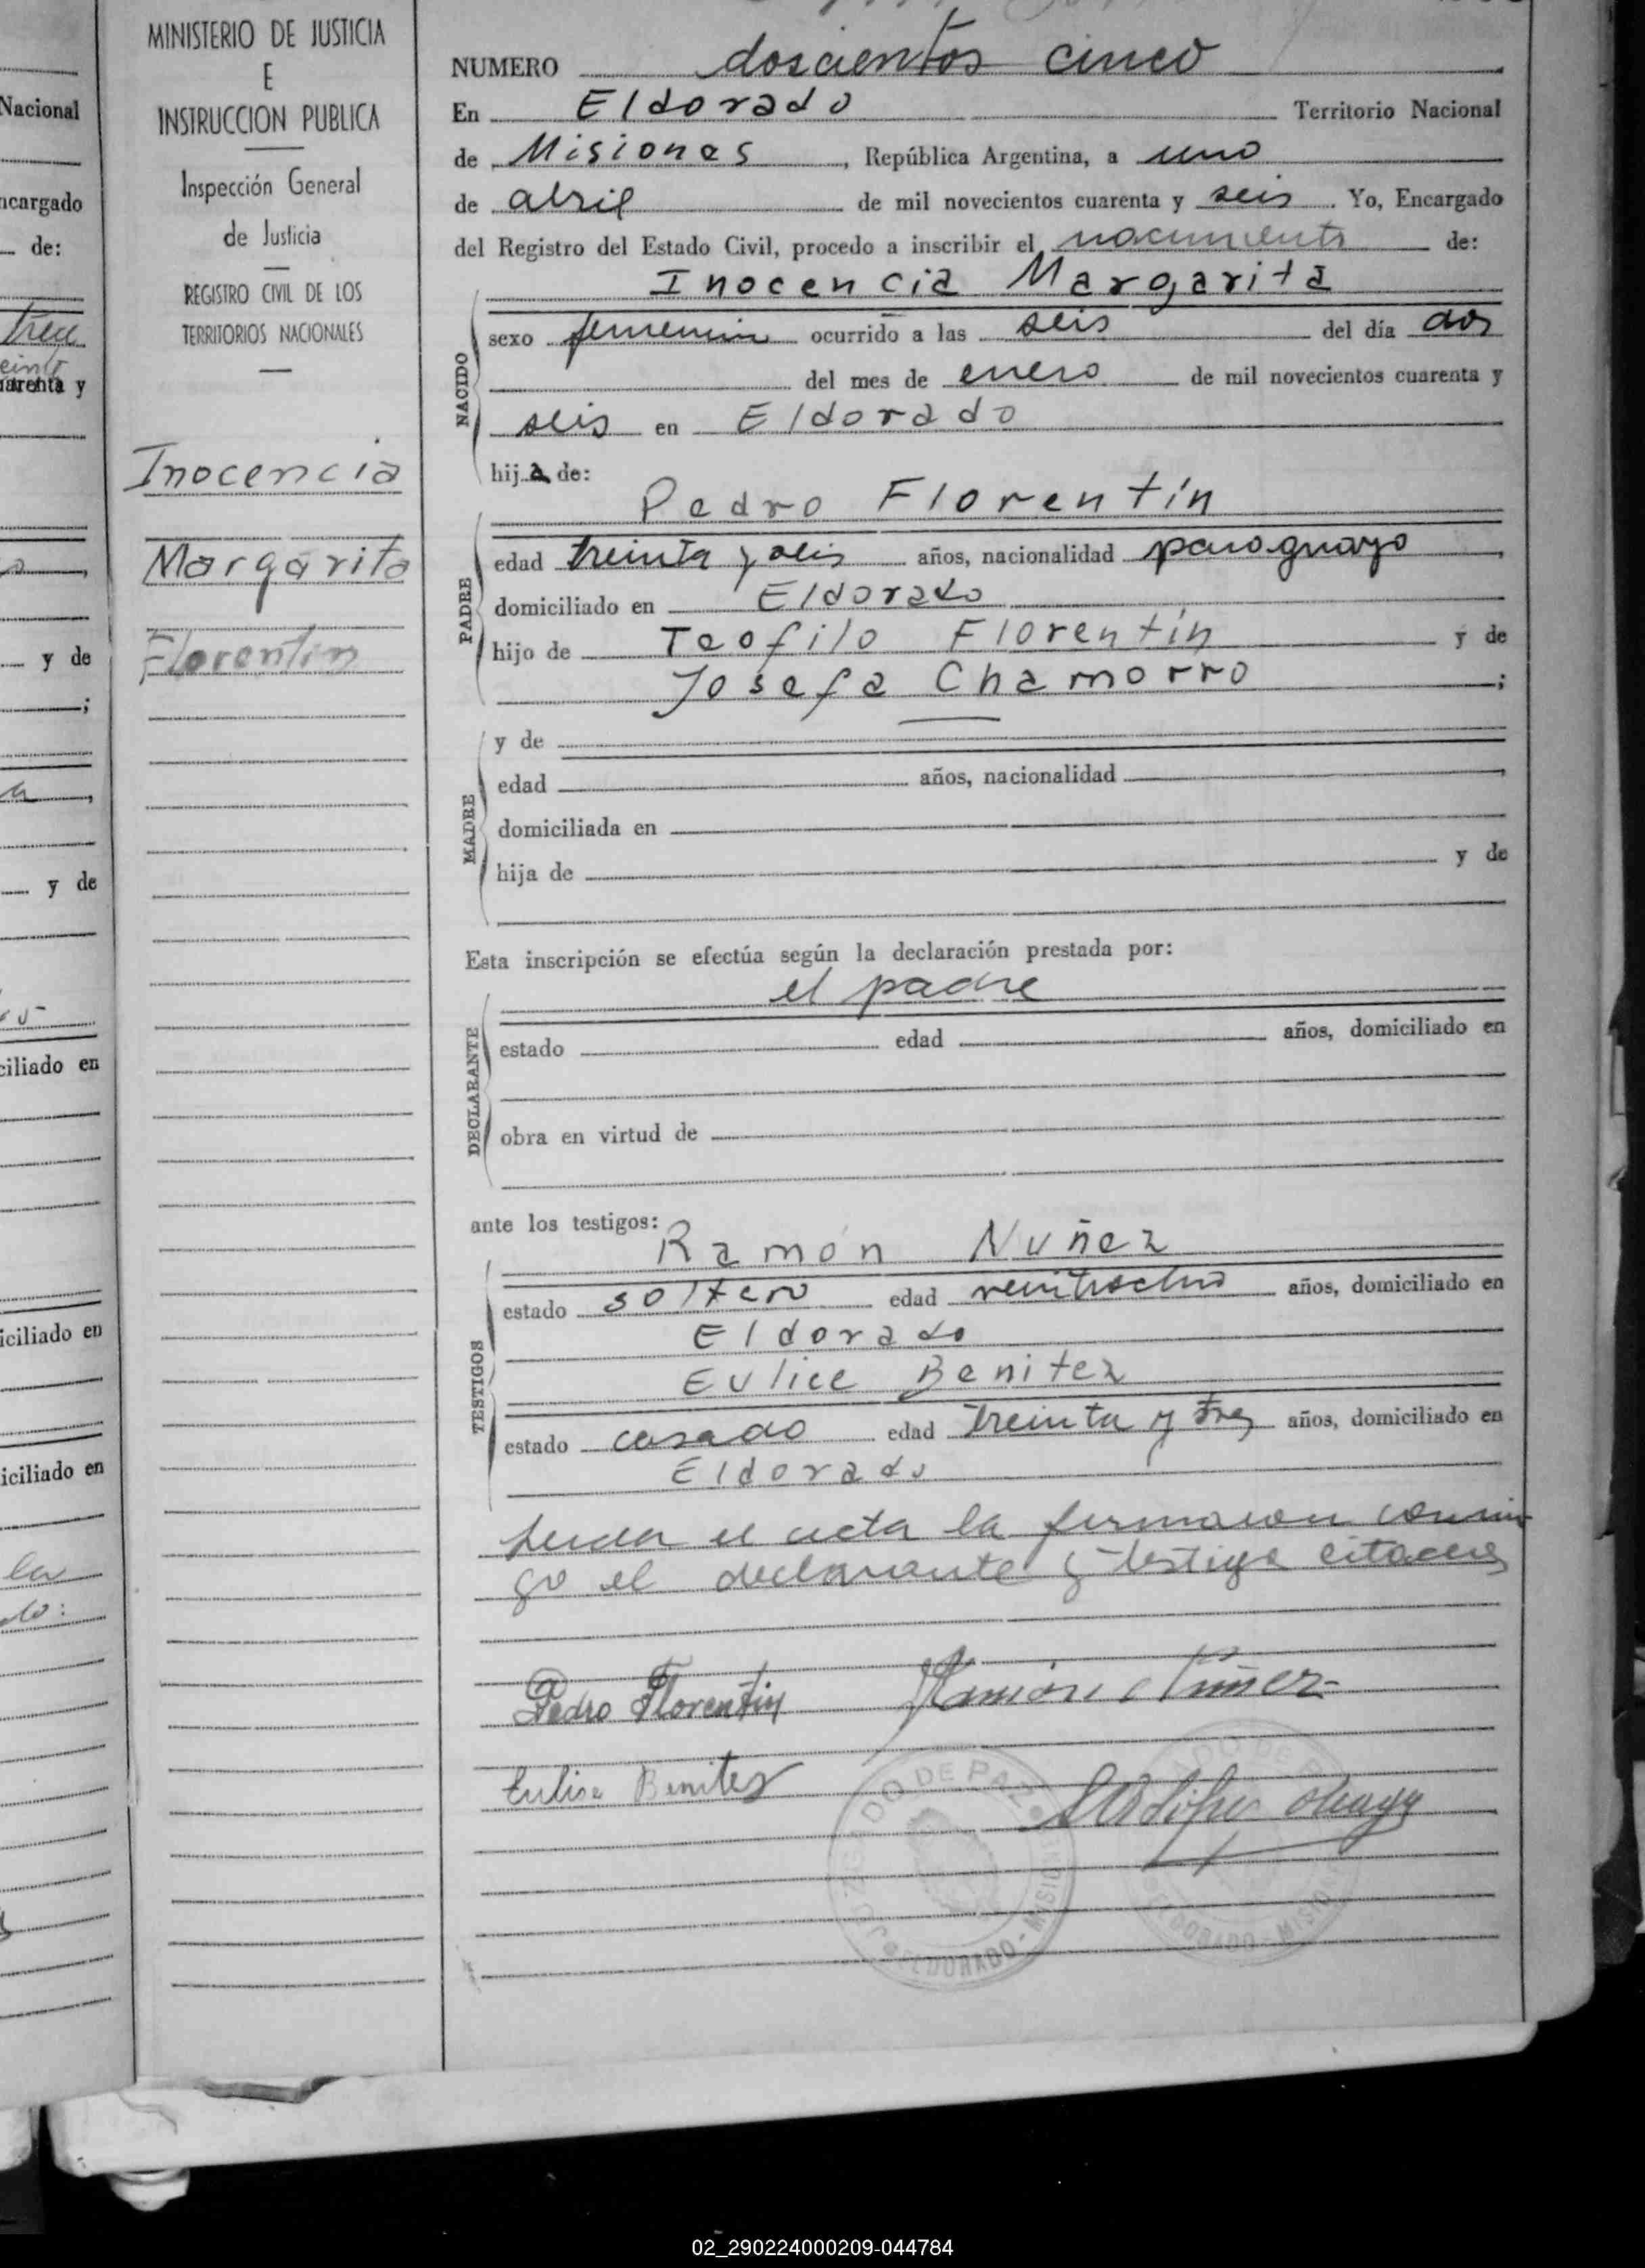 Nacional
ncargado
de:
trece
arenta y
y de
;
y de
ciliado en
iciliado en
iciliado en
la
MINISTERIO DE JUSTICIA
E
INSTRUCCION PUBLICA
Inspección General
de Justicia
REGISTRO CIVIL DE LOS
TERRITORIOS NACIONALES
Inocencia
Margarita
Florentin
NUMERO doscientos cinco
En Eldorado Territorio Nacional
de Misiones, República Argentina, a uno
de abril de mil novecientos cuarenta y seis. Yo, Encargado
del Registro del Estado Civil, procedo a inscribir el nacimiento de:
Inocencia Margarita
NACIDO
sexo femenino ocurrido a las seis del día dos
del mes de enero de mil novecientos cuarenta y
seis en Eldorado
hija de:
Pedro Florentín
PADRE
edad treinta y seis años, nacionalidad paraguayo,
domiciliado en Eldorado
hijo de Teofilo Florentín y de
Josefa Chamorro;
MADRE
y de
edad años, nacionalidad
domiciliada en
hija de y de
Esta inscripción se efectúa según la declaración prestada por:
el padre
DECLARANTE
estado edad años, domiciliado en
obra en virtud de
ante los testigos:
Ramón Nuñez
TESTIGOS
estado soltero edad veintiocho años, domiciliado en
Eldorado
Eulice Benitez
estado casado edad treinta y tres años, domiciliado en
Eldorado
el acta la firmaron conmi
go el declarante y testigos citados
Pedro Florentin Ramón Núñez
Eulise Benitez
JUZGADO DE PAZ
ELDORADO - MISIONES
ELDORADO - MISIO
02_290224000209-044784